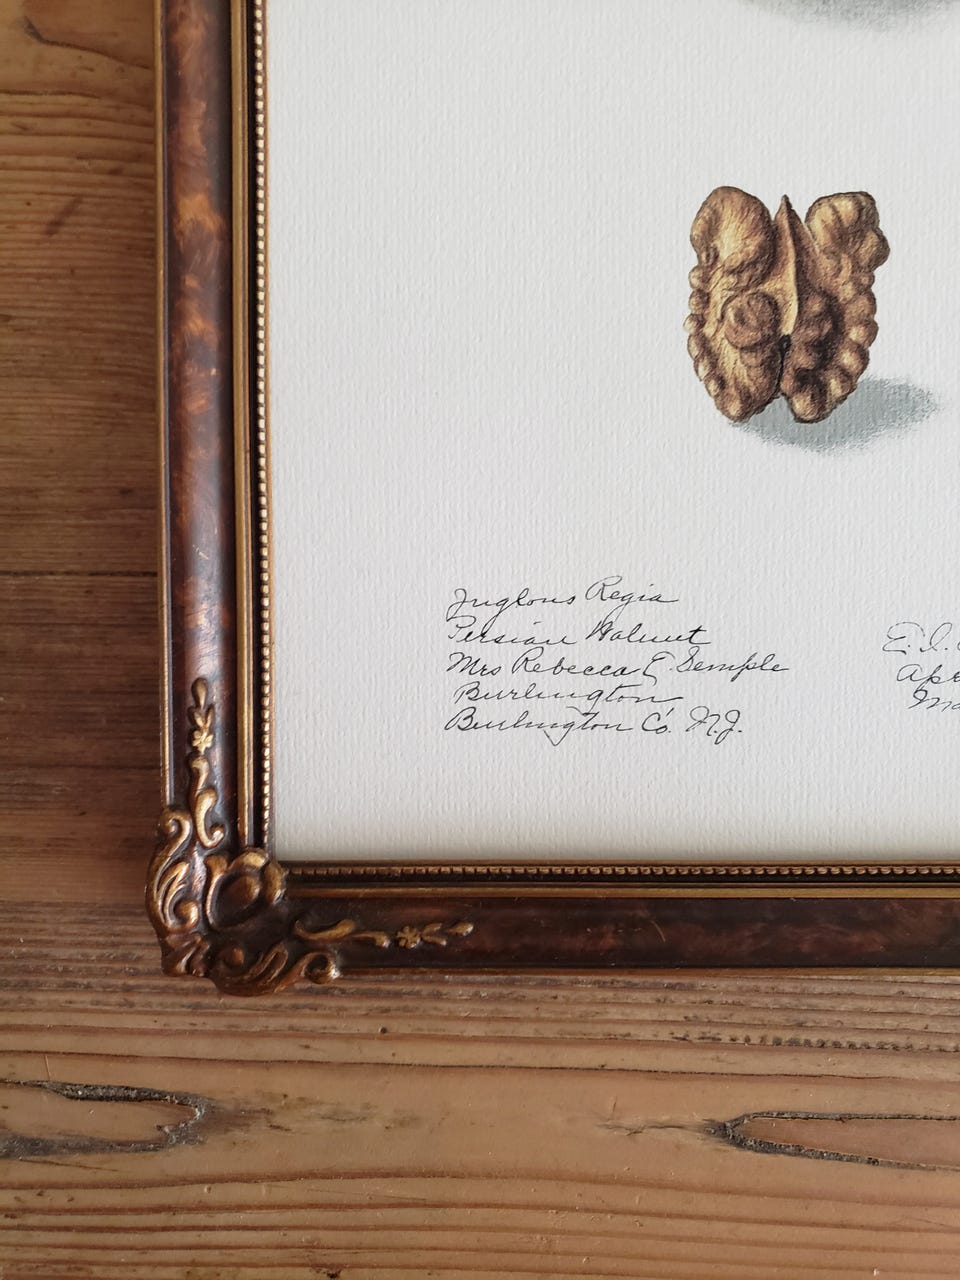 Juglans Regia
Persian Walnut
Mrs Rebecca E. Semple
Burlington
Burlington Co. N.J.
E. I.
Apr
Ma